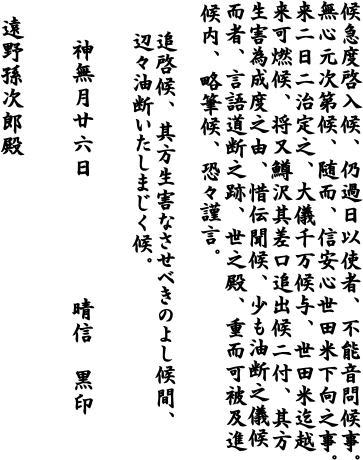 候急度啓入候、仍過日以使者、不能音問候事。
無心元次第候、随而、信安心世田米下向之事。
来二日二治定之、大儀千万候与、世田米迄越
来可燃候、将又鱒沢其差口追出候二付、其方
生害為成度之由、惜伝聞候、少も油断之儀候
而者、言語道断之跡、世之殿、重而可被及進
候内、略筆候、恐々謹言。
追啓候、其方生害なさせべきのよし候間、
辺々油断いたしまじく候。
神無月廿六日　　晴信　黒印
遠野孫次郎殿